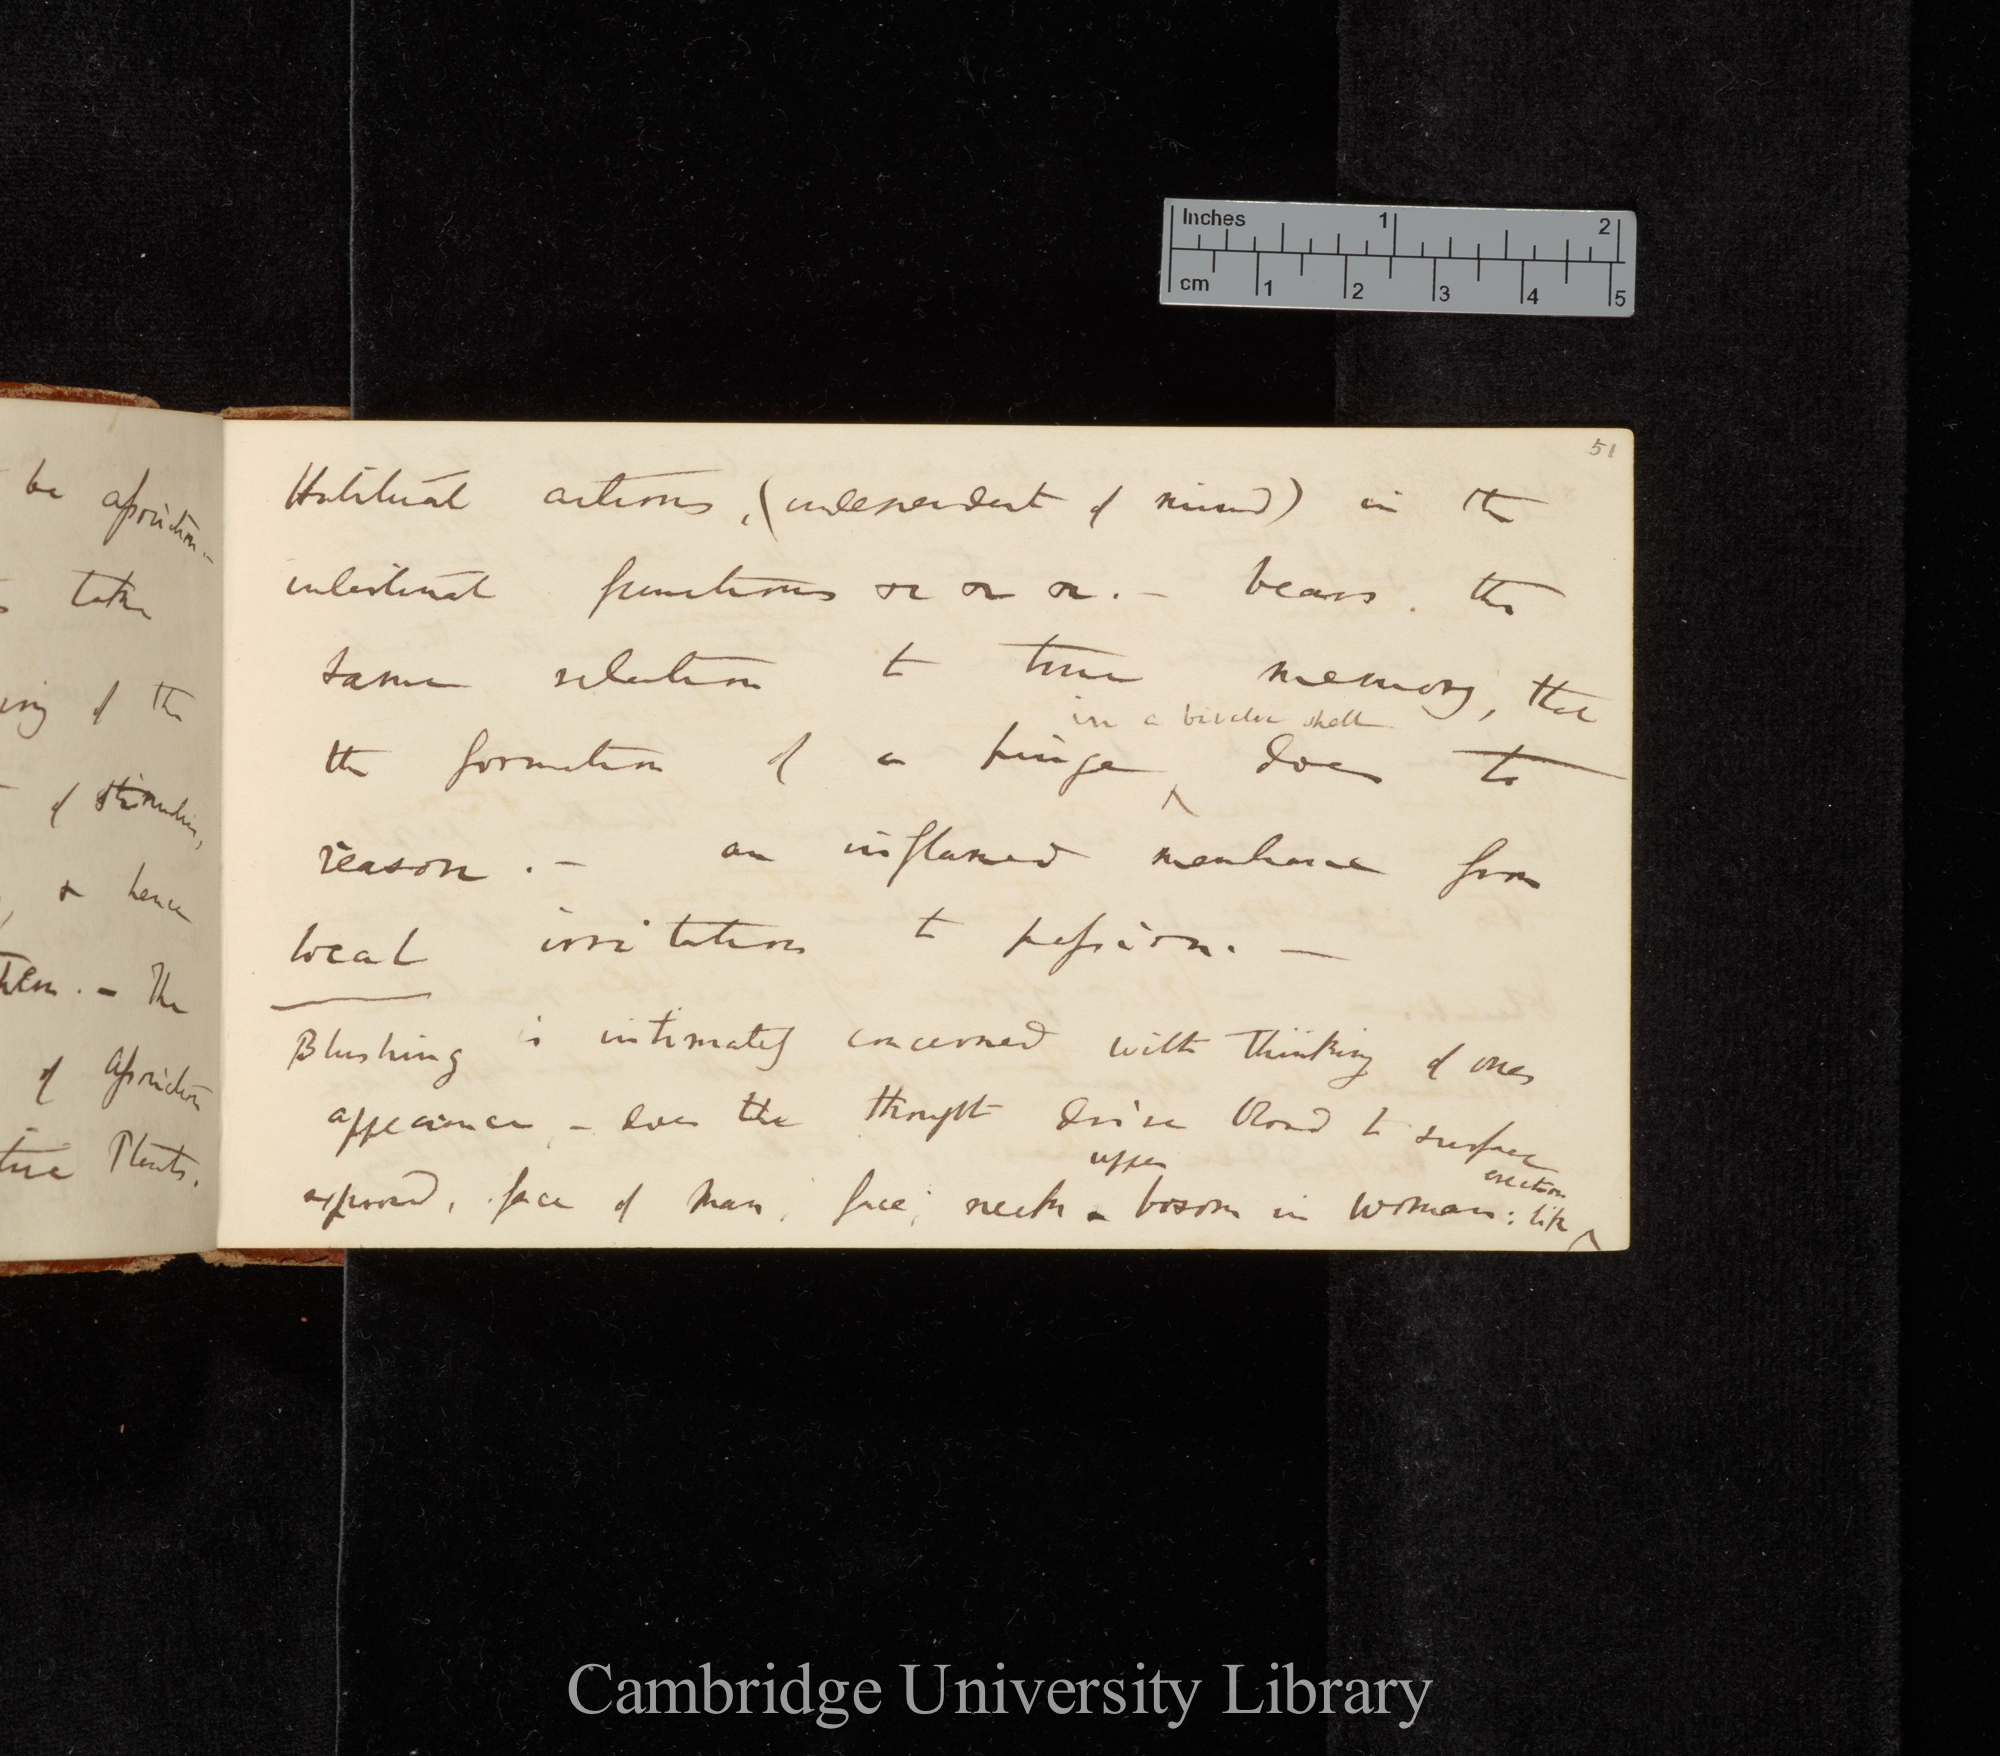 Inches 1 2
cm 1 2 3 4 5
be association.—
take
of the
of stimulus,
& hence
The
of association
Plants.
51
Habitual actions, (independent of mind) in the
intestinal functions &c &c &c.— bears. the
same relation to true memory, that
in a bivalve shell
the formation of a hinge ^ does to
reason.— an inflamed membrane from
local irritation to passion.—
Blushing is intimately concerned with thinking of ones
appearance, — does the thought drive blood to surface
upper
erection
exposed, face of man, face, neck & bosom in woman: like ^
Cambridge University Library